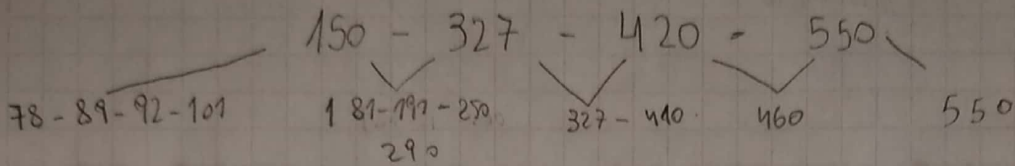 150 - 327 - 420 - 550
78 - 89 - 92 - 101 181 - 191 - 250 327 - 410 460 550
290